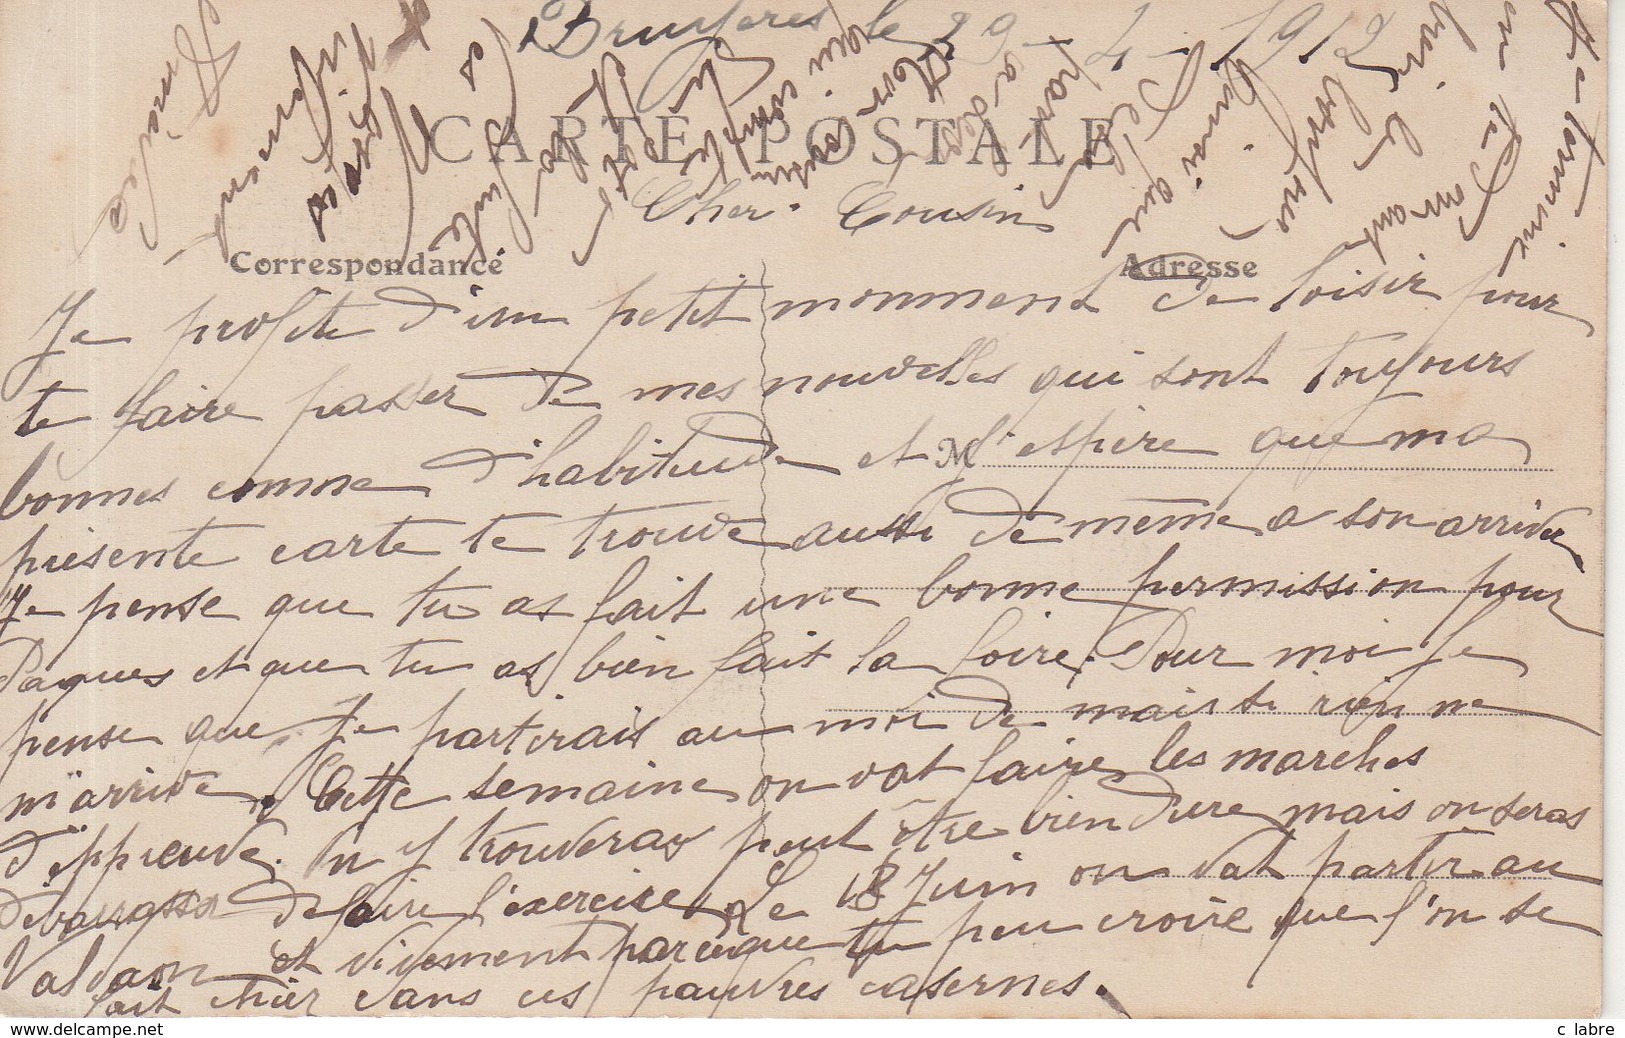 Bruyeres le 29 - 4 - 1912
CARTE POSTALE
Cher Cousin
Correspondance
Adresse
Je profite d'un petit momment de loisir pour
te faire passer de mes nouvelles qui sont toujours
bonnes comme d'habitude et M j'espère que ma
présente carte te trouve aussi de même a son arriver
Je pense que tu as fait une bonne permission pour
Paques et que tu as bien fait la foire. Pour moi je
pense que je partirais au moi de mai si rien ne
m'arrive. Cette semaine on vat faire les marches
d'eppreuve. On y trouveras peut être bien dure mais on seras
débarrasser de faire l'exercise. Le 18 Juin on vat partir au
Valdaon et vivement parceque tu peu croire que l'on se
fait chier dans ces pauvres casernes.
Je termine
en te
serrant la
Ton cousin
qui
la
vivement
www.delcampe.net
c labre